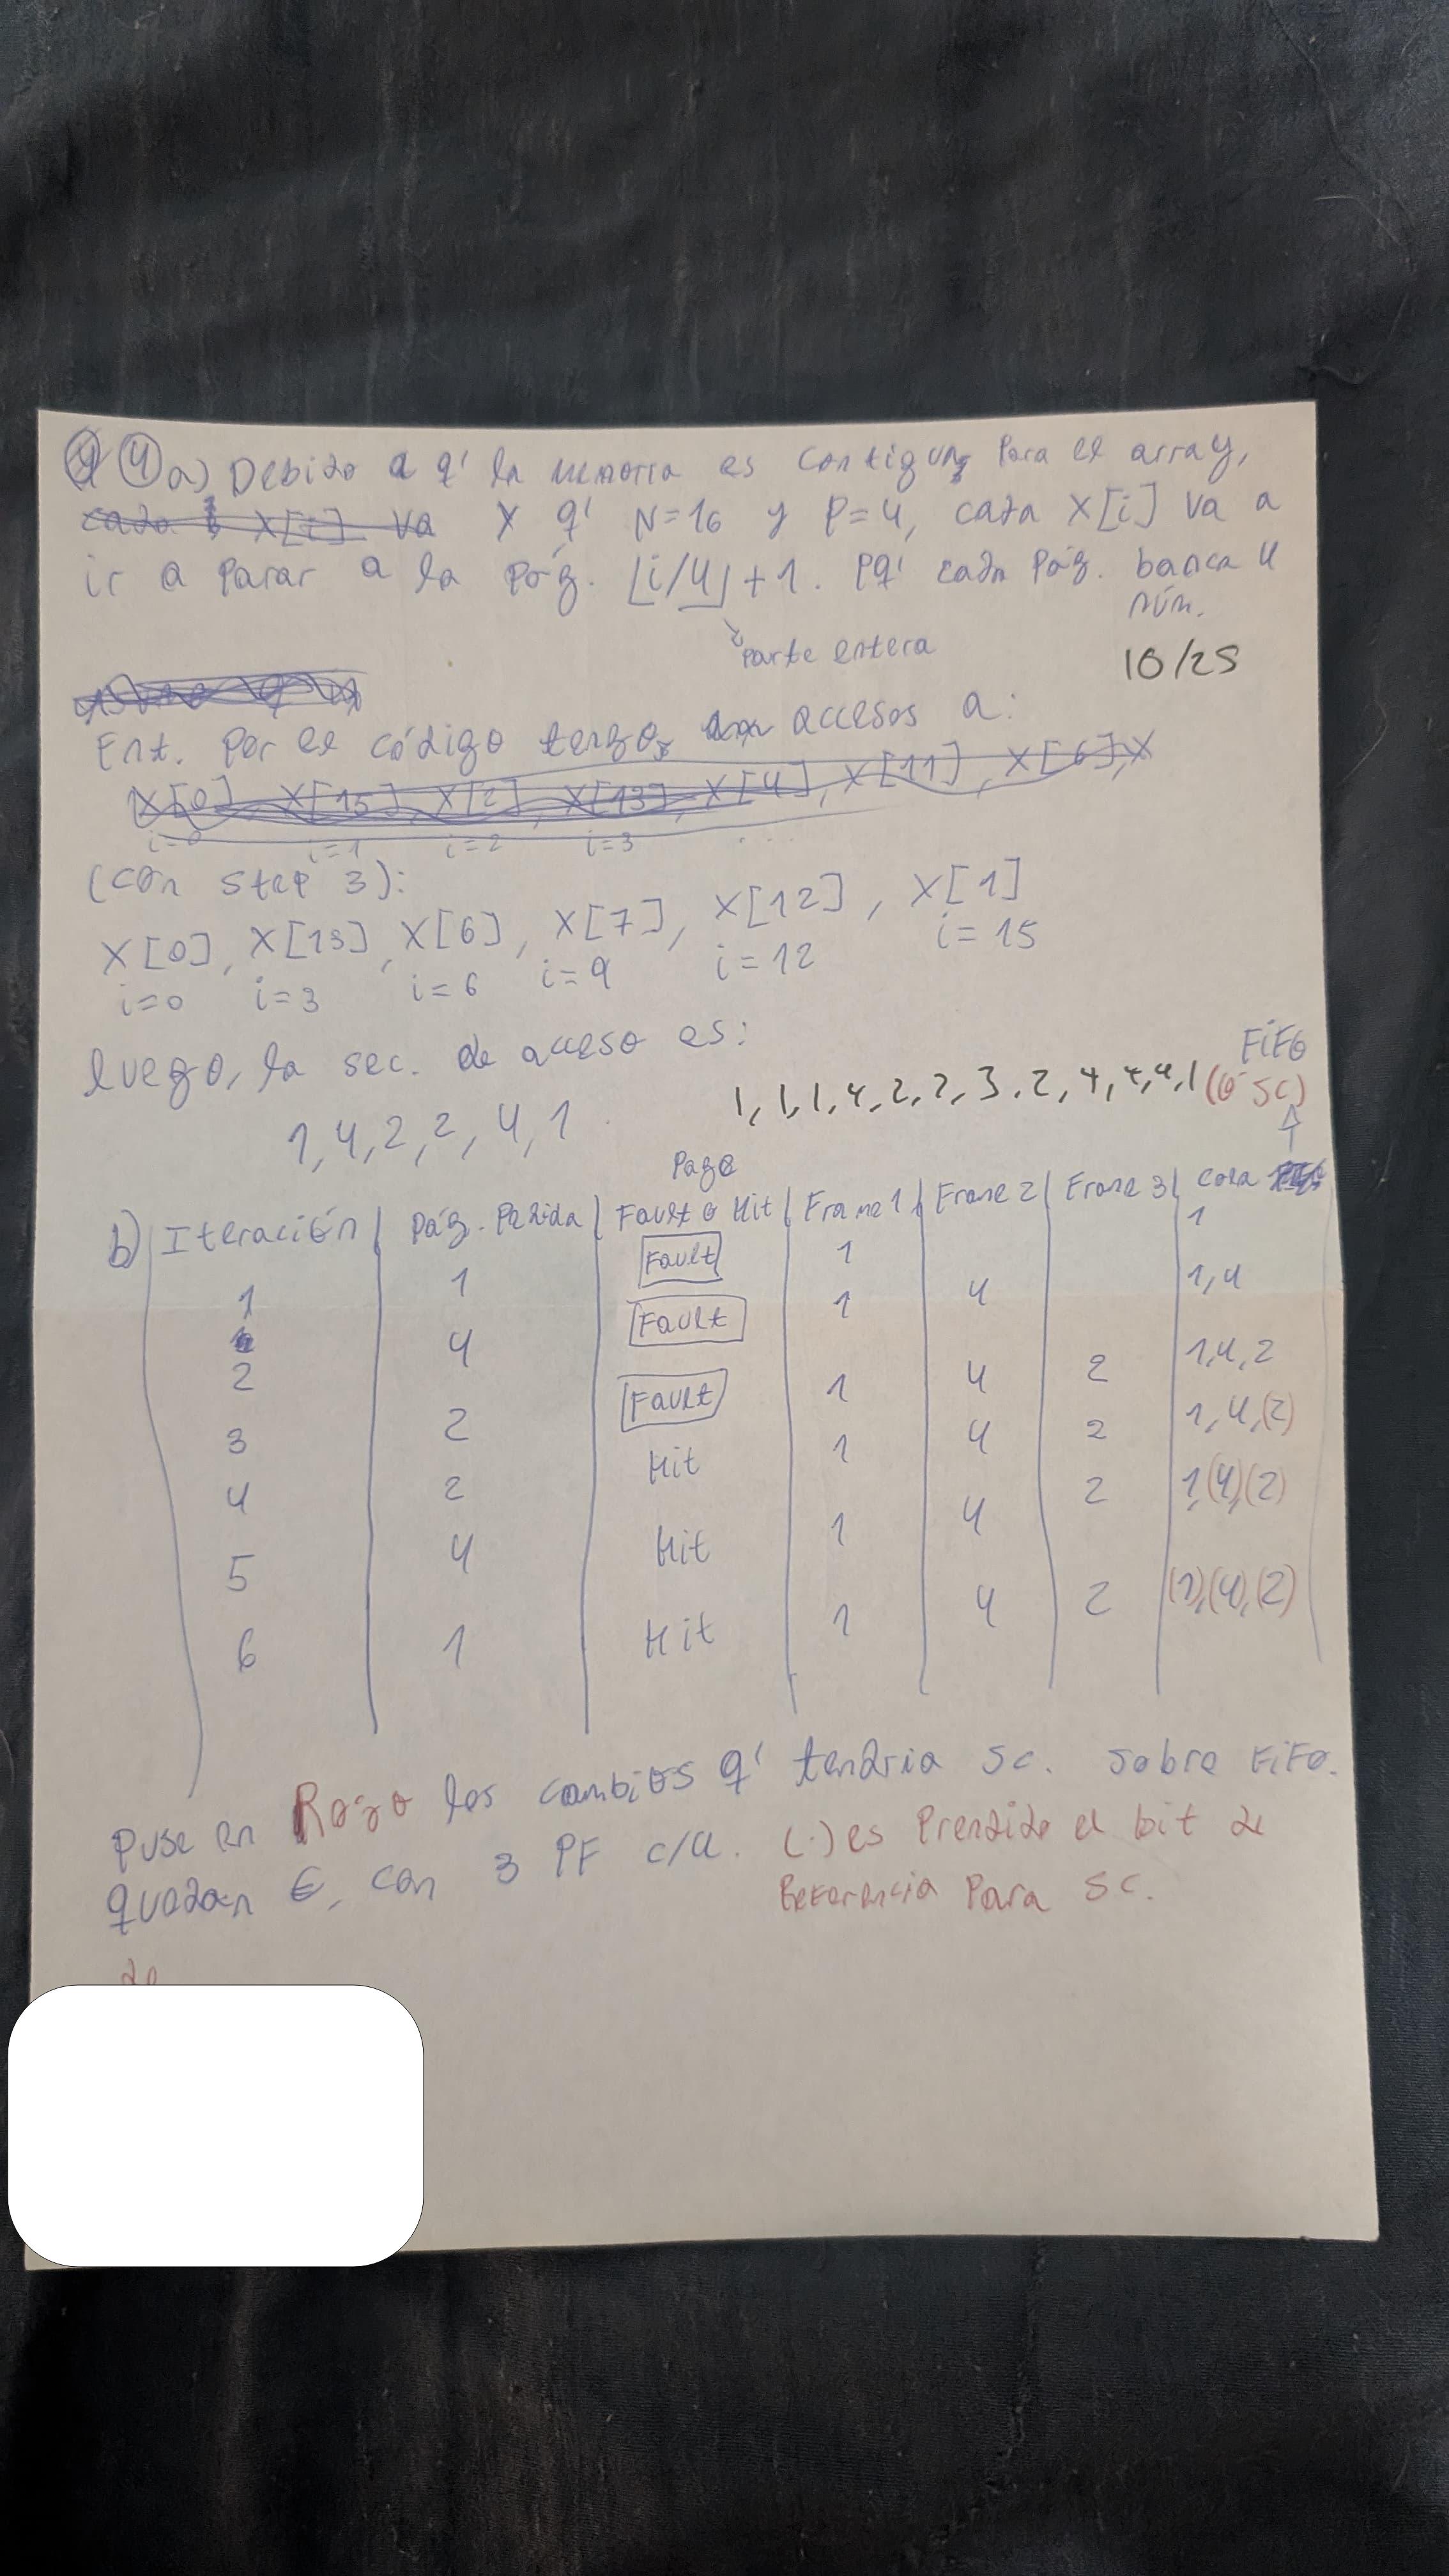 ④a) Debido a q' la memoria es contigua para el array,
cada X[i] va X q' N=16 y P=4, cada X[i] va a
ir a parar a la pág. ⌊i/4⌋+1. Pq' cada pág. banca 4
núm.
parte entera
10/25
Ent. por el código tengo accesos a:
X[0], X[15], X[2], X[13], X[4], X[11], X[6], X
i=0 i=1 i=2 i=3 ...
(con step 3):
X[0], X[13], X[6], X[7], X[12], X[1]
i=0 i=3 i=6 i=9 i=12 i=15
luego, la sec. de acceso es:
1,4,2,2,4,1.
1,1,1,4,2,2,3,2,4,4,4,1
FIFO
(ó SC)
Page
b) Iteración | Pág. Pedida | Fault o Hit | Frame 1 | Frame 2 | Frame 3 | cola
1 1 Fault 1 1
2 4 Fault 1 4 1,4
3 2 Fault 1 4 2 1,4,2
4 2 Hit 1 4 2 1,4,(2)
5 4 Hit 1 4 2 1,(4),(2)
6 1 Hit 1 4 2 (1),(4),(2)
puse en Rojo los cambios q' tendria sc. sobre FiFo.
quedan =, con 3 PF c/u. (·) es prendido el bit de
Referencia para SC.
de